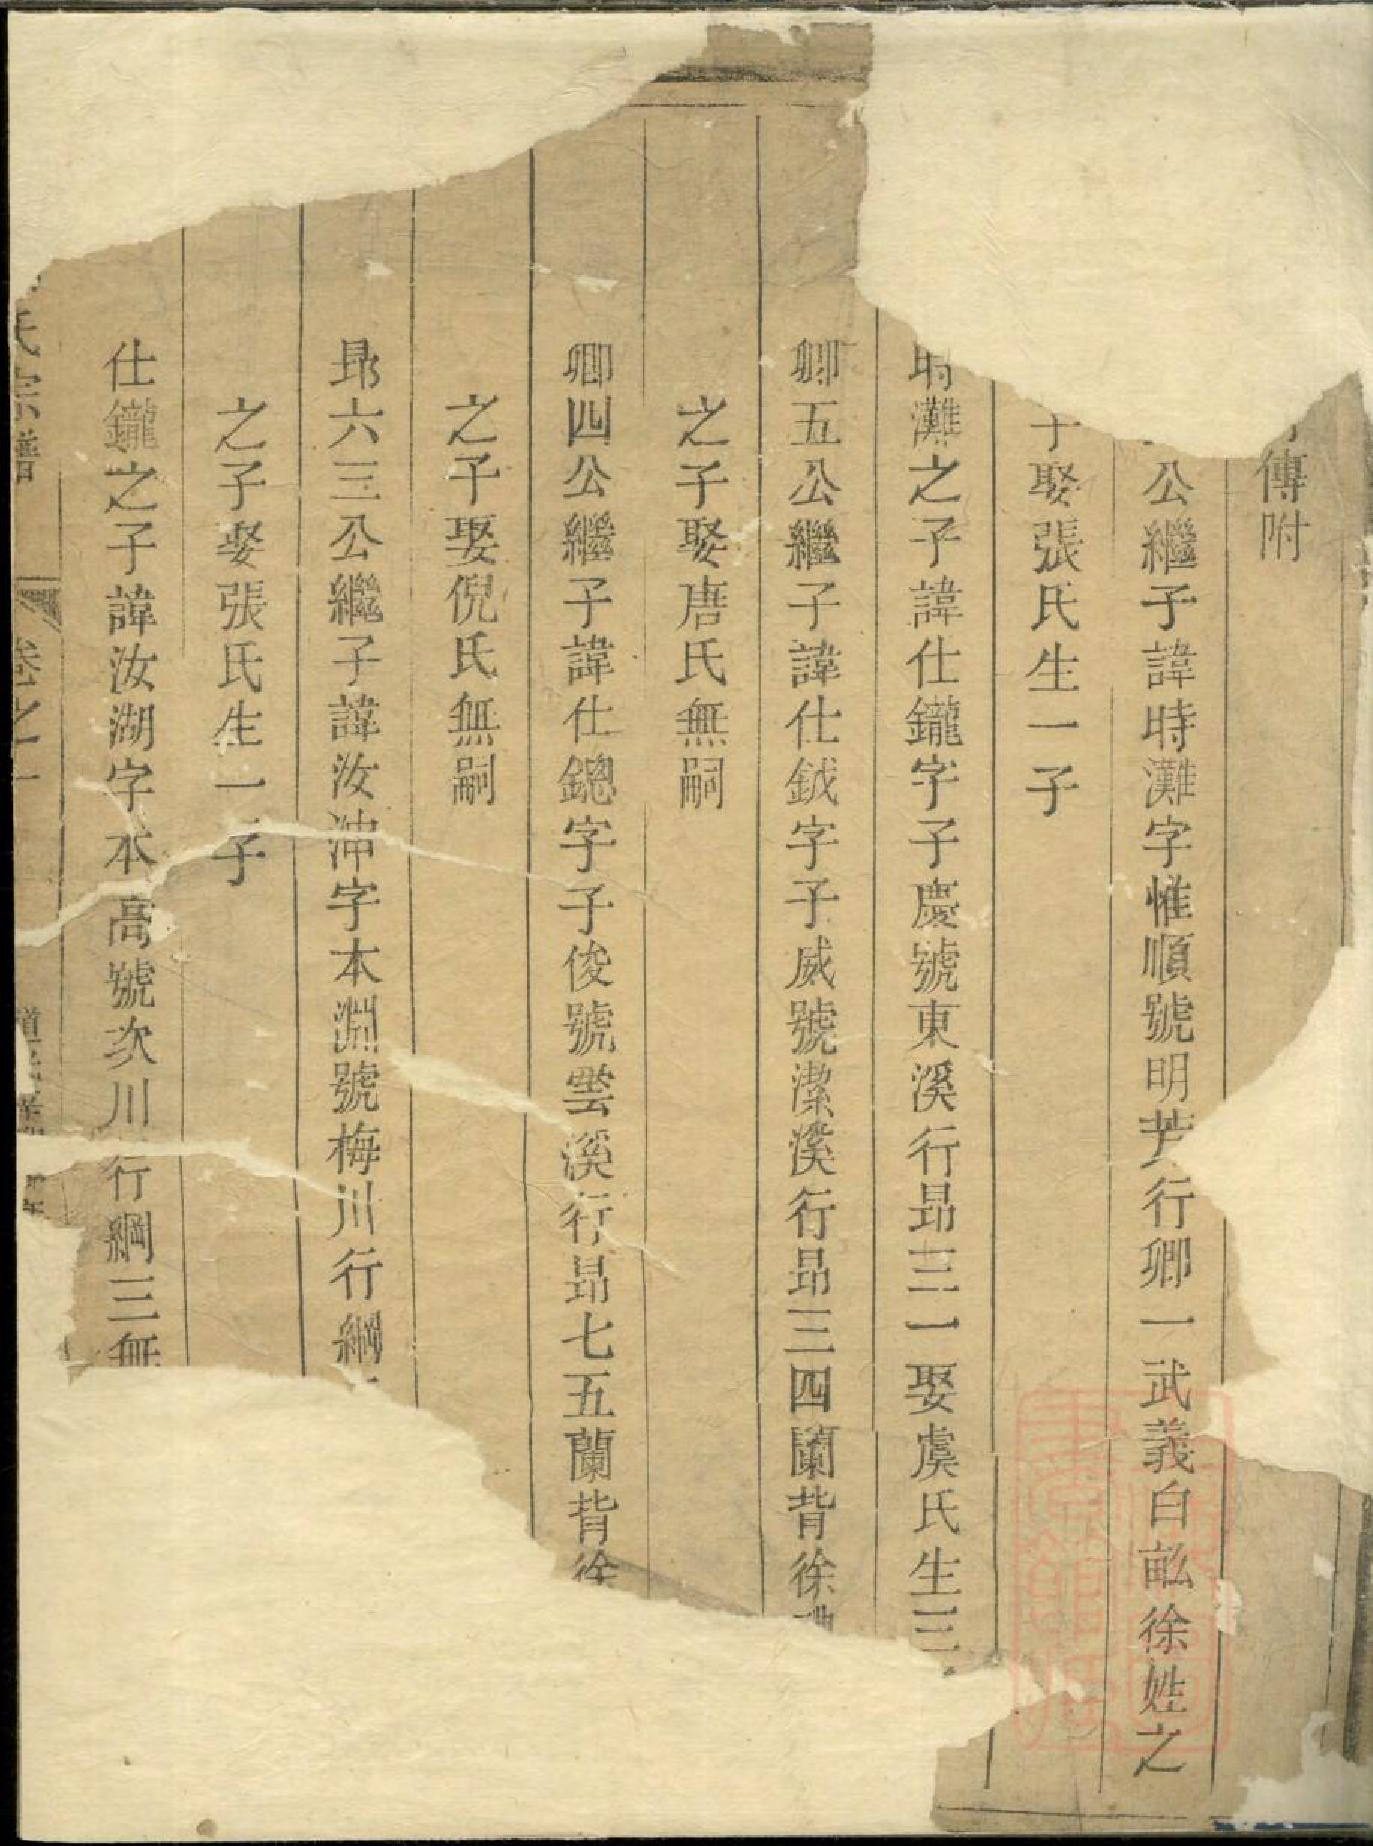 傳附
公繼子諱時灘字惟順號明芳行卿一武義白畆徐姓之
子娶張氏生一子
時灘之子諱仕鑨字子慶號東溪行昻三一娶虞氏生三
卿五公繼子諱仕鉞字子威號潔溪行昻三四蘭背徐
之子娶唐氏無嗣
卿四公繼子諱仕鍯字子俊號雲溪行昻七五蘭背徐
之子娶倪氏無嗣
昻六三公繼子諱汝沖字本淵號梅川行綱
之子娶張氏生一子
仕鑨之子諱汝湖字本高號次川行綱三無
氏宗譜 卷之一